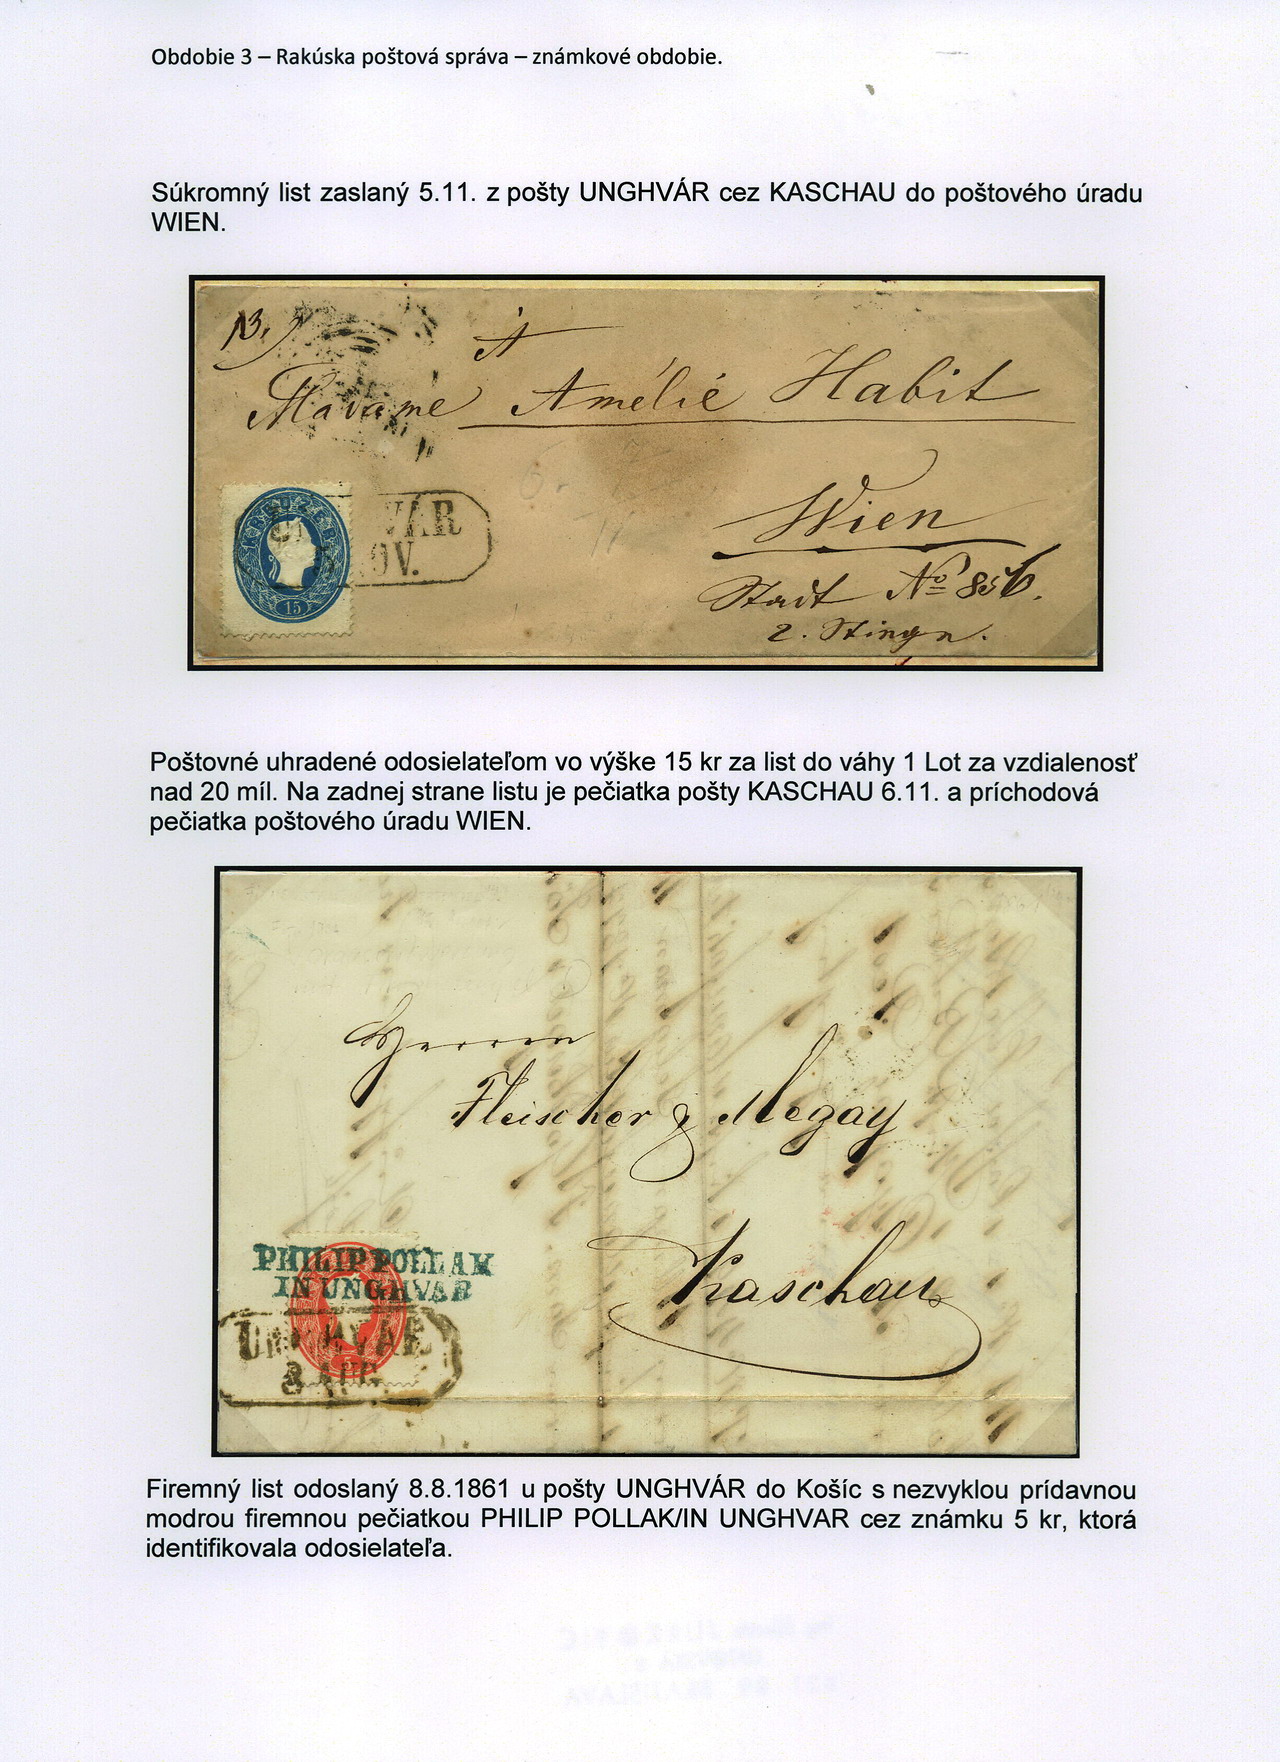 Obdobie 3 – Rakúska poštová správa – známkové obdobie.
Súkromný list zaslaný 5.11. z pošty UNGHVÁR cez KASCHAU do poštového úradu
WIEN.
13.
A
Madame Amélie Habit
Wien
Stadt No 856.
2. Stiege.
KREUZER
15
VÁR
5 NOV.
Poštovné uhradené odosielateľom vo výške 15 kr za list do váhy 1 Lot za vzdialenosť
nad 20 míl. Na zadnej strane listu je pečiatka pošty KASCHAU 6.11. a príchodová
pečiatka poštového úradu WIEN.
Herren
Fleischer & Megay
Kaschau
PHILIP POLLAK
IN UNGHVAR
UNGHVÁR
8 AUG.
Firemný list odoslaný 8.8.1861 u pošty UNGHVÁR do Košíc s nezvyklou prídavnou
modrou firemnou pečiatkou PHILIP POLLAK/IN UNGHVAR cez známku 5 kr, ktorá
identifikovala odosielateľa.